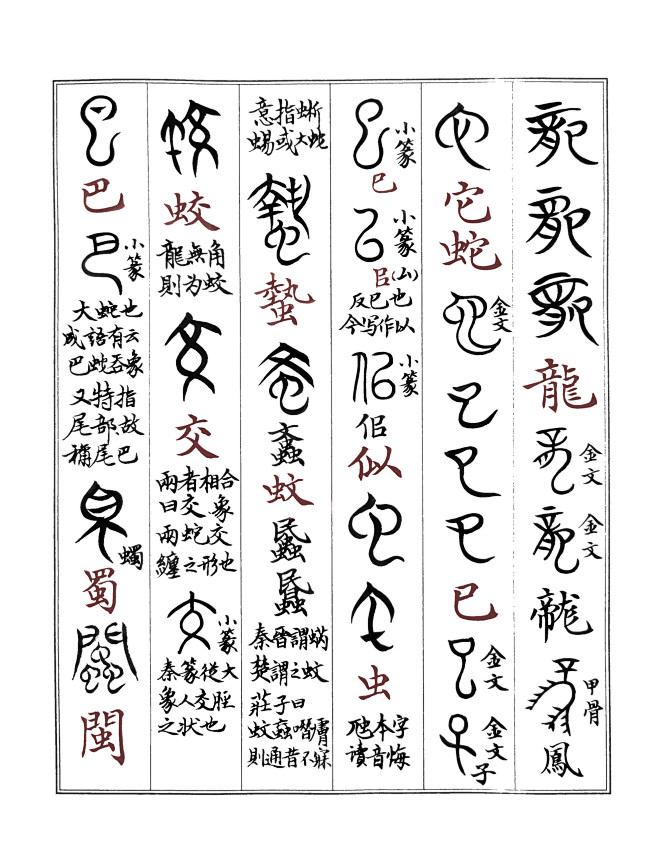 龍
金文
金文
甲骨
鳳
它
蛇
金文
巳
金文
金文
子
小篆
巳
小篆
㠯(山)
反巳也
今写作以
小篆
佀
似
虫
虺本字
讀音悔
意指蜥
蜴或大蛇
蟄
蚊
秦晋謂蜹
楚謂之蚊
莊子曰
蚊虻噆膚
則通昔不寐
蛟
龍無角
則为蛟
交
兩者相合
曰交象
兩蛇交
纏之形也
小篆
秦篆從大
象人交脛
之狀也
巴
小篆
大蛇也
成語有云
巴蛇吞象
又特指
尾部故
稱尾巴
蠋
蜀
閩